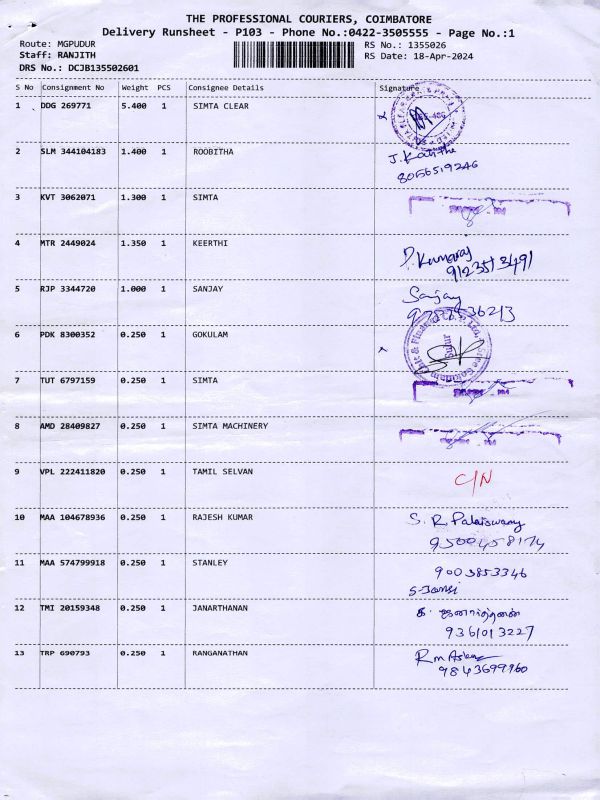 THE PROFESSIONAL COURIERS, COIMBATORE
Delivery Runsheet - P103 - Phone No.:0422-3505555 - Page No.:1
Route: MGPUDUR RS No.: 1355026
Staff: RANJITH RS Date: 18-Apr-2024
DRS No.: DCJB135502601
S No Consignment No Weight PCS Consignee Details Signature
1 DDG 269771 5.400 1 SIMTA CLEAR
2 SLM 344104183 1.400 1 ROOBITHA
8056519246
3 KVT 3062071 1.300 1 SIMTA
4 MTR 2449024 1.350 1 KEERTHI D. Kumaraj
9123513491
5 RJP 3344720 1.000 1 SANJAY Sanjay
6 PDK 8300352 0.250 1 GOKULAM
7 TUT 6797159 0.250 1 SIMTA
8 AMD 28409827 0.250 1 SIMTA MACHINERY
9 VPL 222411820 0.250 1 TAMIL SELVAN C/N
10 MAA 104678936 0.250 1 RAJESH KUMAR S. R. Palaiswamy
9500458174
11 MAA 574799918 0.250 1 STANLEY 9003853346
S-Jansi
12 TMI 20159348 0.250 1 JANARTHANAN க. ஜனார்த்தனன்
9361013227
13 TRP 690793 0.250 1 RANGANATHAN
9843699960